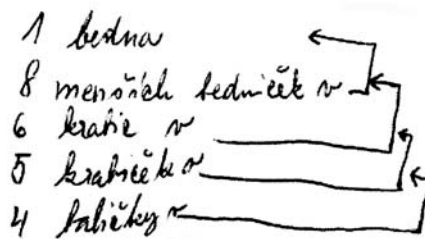 1 bedna
8 menších bedniček v
6 krabic v
5 krabiček v
4 balíčky v